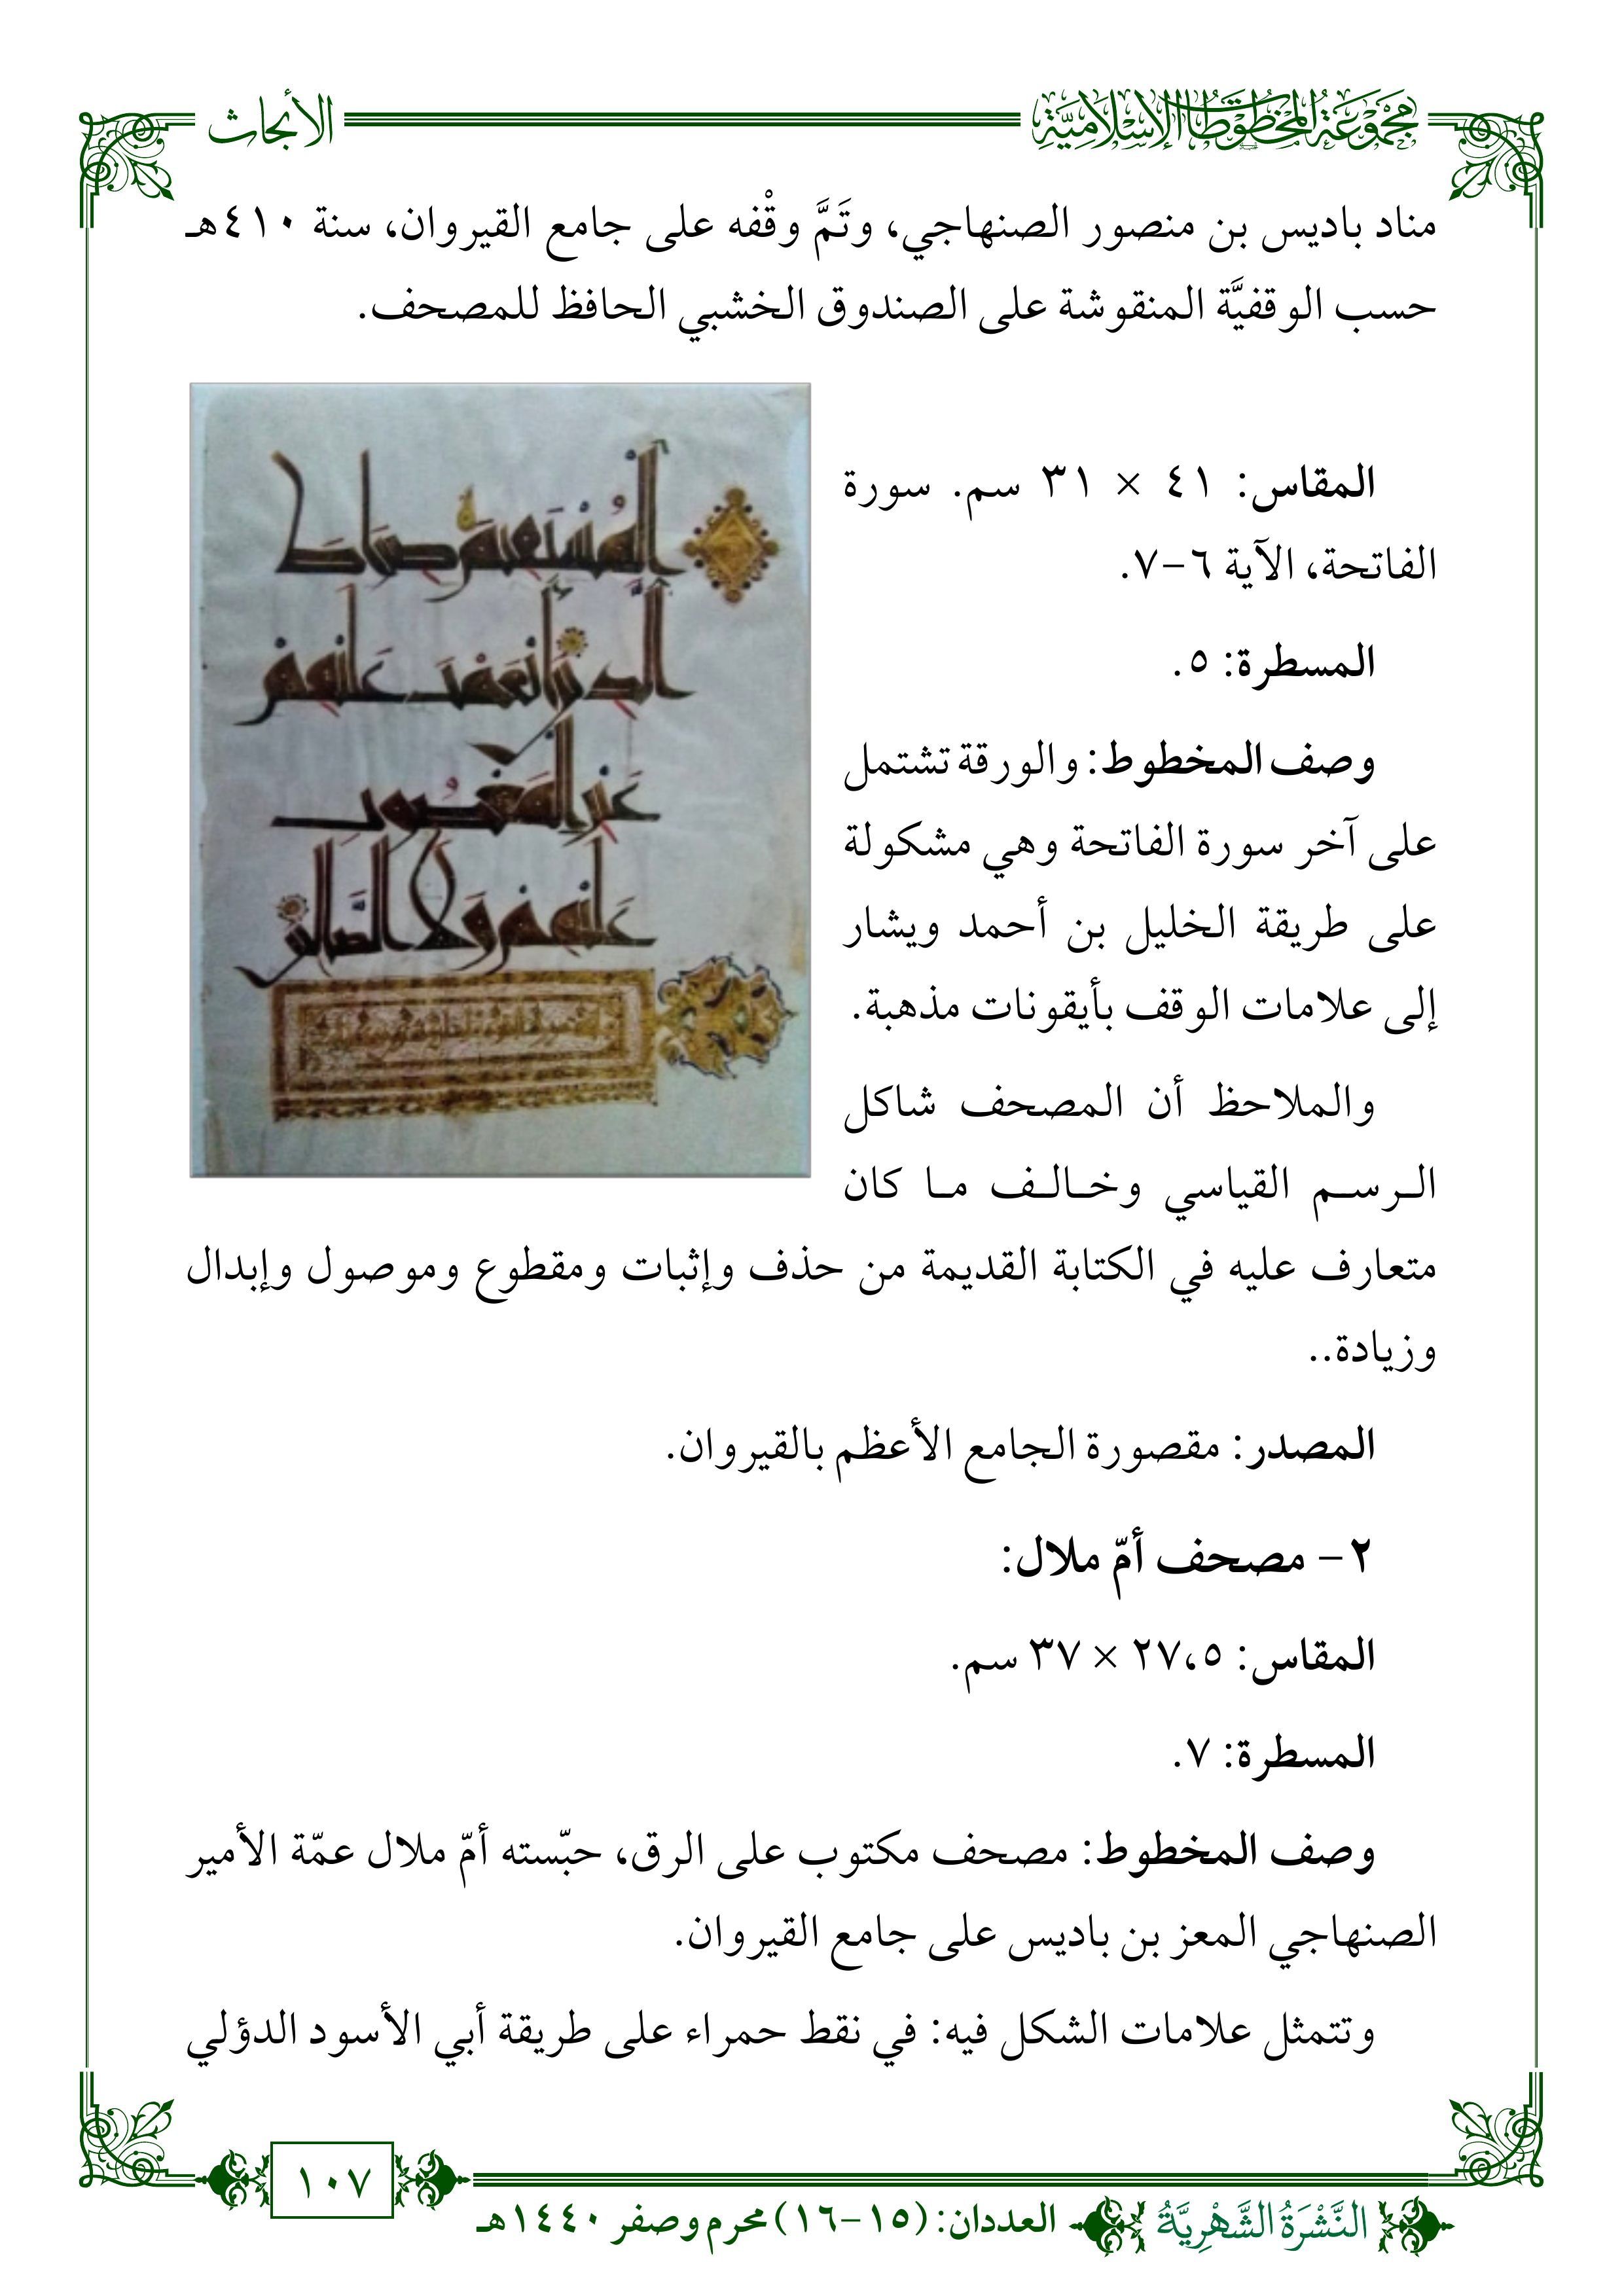 مجموعة المخطوطات الإسلامية
الأبحاث
مناد باديس بن منصور الصنهاجي، وتَمَّ وقْفه على جامع القيروان، سنة ٤١٠هـ
حسب الوقفيَّة المنقوشة على الصندوق الخشبي الحافظ للمصحف.
المستقيم صراط
الذين أنعمت عليهم
غير المغضوب
عليهم ولا الضالين
المقاس: ٤١ × ٣١ سم. سورة
الفاتحة، الآية ٦-٧.
المسطرة: ٥.
وصف المخطوط: والورقة تشتمل
على آخر سورة الفاتحة وهي مشكولة
على طريقة الخليل بن أحمد ويشار
إلى علامات الوقف بأيقونات مذهبة.
والملاحظ أن المصحف شاكل
الرسم القياسي وخالف ما كان
متعارف عليه في الكتابة القديمة من حذف وإثبات ومقطوع وموصول وإبدال
وزيادة..
المصدر: مقصورة الجامع الأعظم بالقيروان.
٢- مصحف أمّ ملال:
المقاس: ٢٧،٥ × ٣٧ سم.
المسطرة: ٧.
وصف المخطوط: مصحف مكتوب على الرق، حبّسته أمّ ملال عمّة الأمير
الصنهاجي المعز بن باديس على جامع القيروان.
وتتمثل علامات الشكل فيه: في نقط حمراء على طريقة أبي الأسود الدؤلي
١٠٧
النَّشْرَةُ الشَّهْرِيَّةُ العددان: (١٥-١٦) محرم وصفر ١٤٤٠هـ